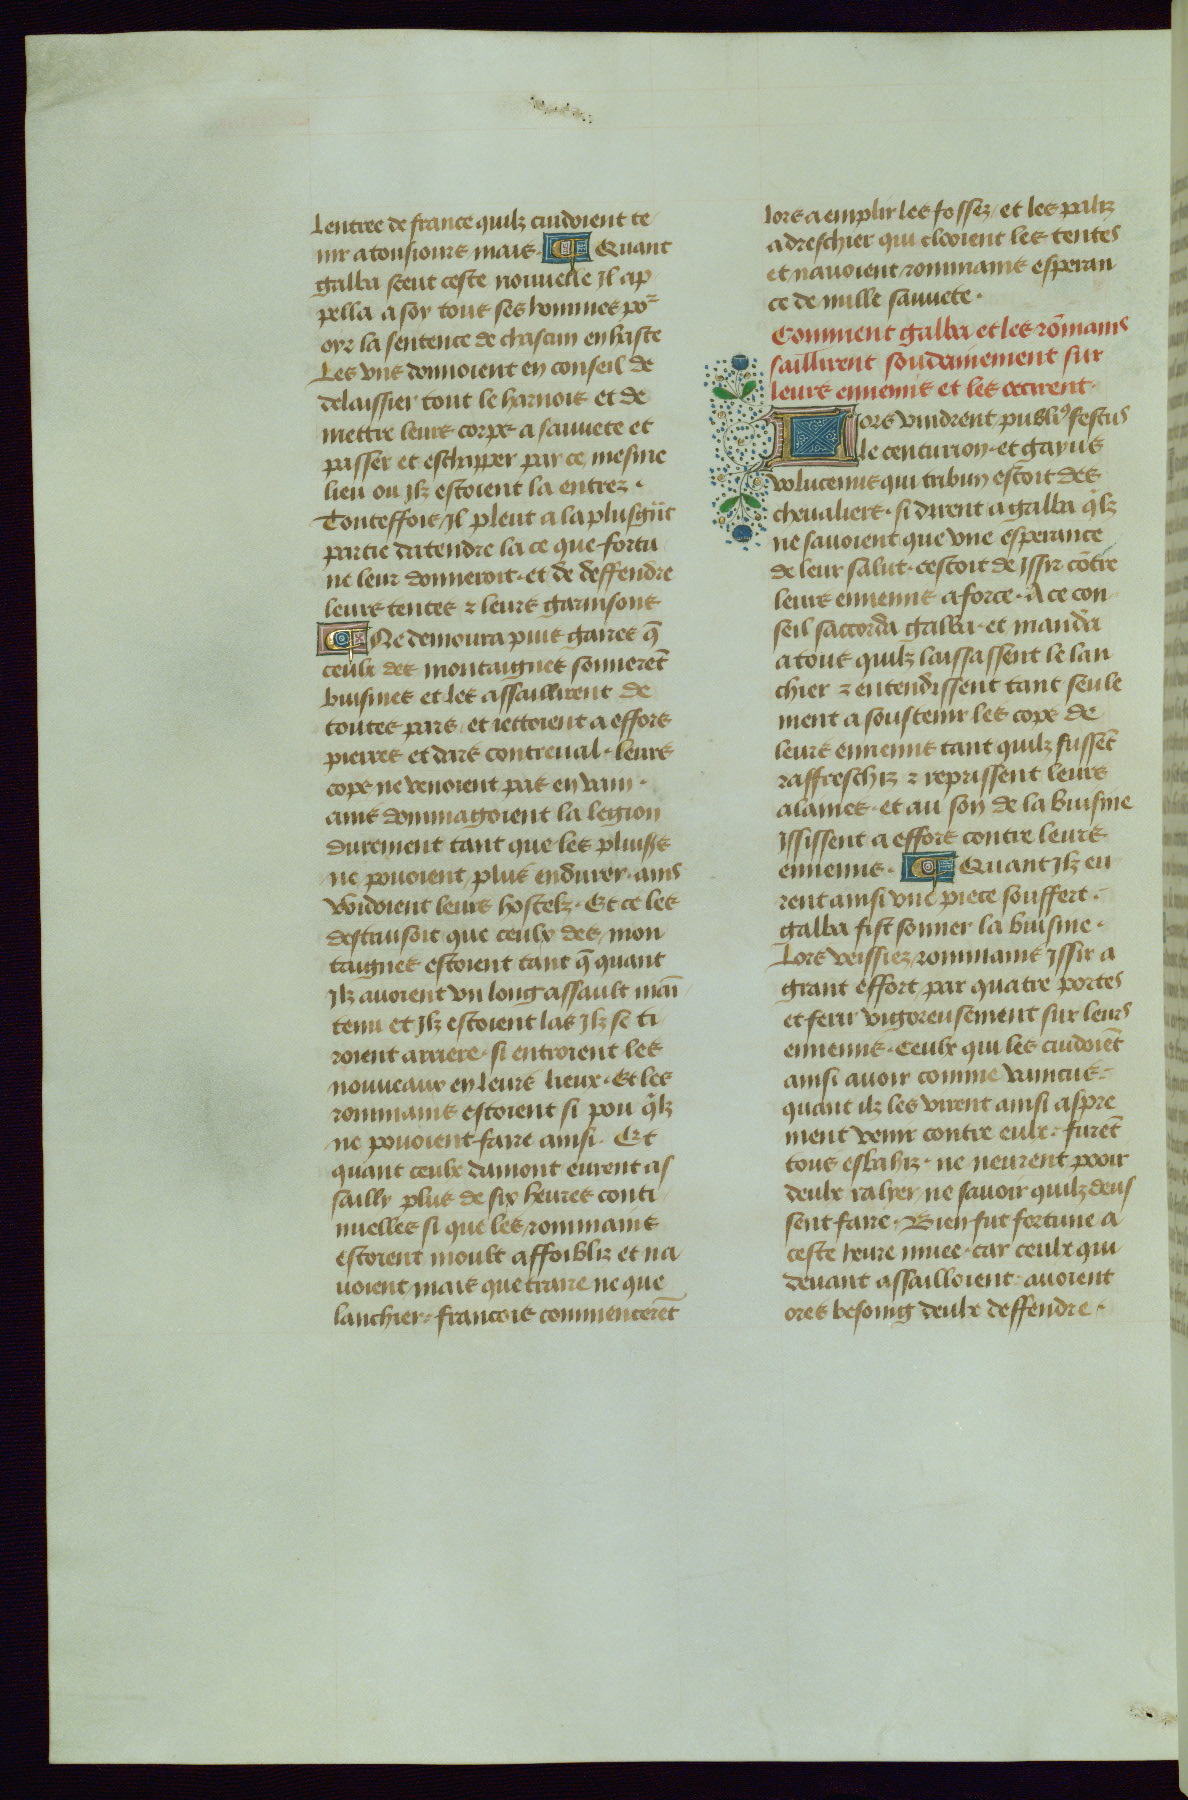 lentree de france quilz cuidoient te
nir a tousiours mais. Quant
galba sceut ceste nouuelle Il ap
pella a soy tous ses hommes por
oyr la sentence de chascun en haste
Les vns donnoient en conseil de
delaissier tout le harnois et de
mettre leurs corps a sauuete et
passer et eschapper par ce mesme
lieu ou Ilz estoient la entrez.
Touteffois Il pleut a la plusgrāt
partie datendre la ce que fortu
ne leur donneroit. et de deffendre
leurs tentes ⁊ leurs garnisons
Ne demoura puis gaires q̄
ceulx des montaignes sonnerēt
buisines et les assaillirent de
toutes pars. et iettoient a effors
pierres et dars contreual. leurs
cops ne venoient pas en vain.
ains dommagoient la legion
durement tant que les pluiss
ne pouoient plus endurer. ains
voidoient leurs hostelz. Et ce les
destruisoit que ceulx des mon
taignes estoient tant q̄ quant
Ilz auoient vn long assault māi
tenu et Ilz estoient las Ilz se ti
roient arriere. si entroient les
nouueaux en leurs lieux. Et les
rommains estoient si pou q̄lz
ne pouoient faire ainsi. Et
quant ceulx damont eurent as
sailly plus de six heures conti
nuelles si que les rommains
estoient moult affoibliz et na
uoient mais que traire ne que
lanchier. francois commencerēt
lors a emplir les fossez. et les paliz
adreschier qui clooient les tentes
et nauoient rommains esperan
ce de nulle sauuete.
Comment galba et les rōmains
saillirent soudainement sur
leurs ennemis et les occirent.
Lors vindrent publiꝰ sestus
le centurion. et gayus
volucenus qui tribun estoit des
cheualiers. si dirent a galba q̄lz
ne sauoient que vne esperance
de leur salut. cestoit de Issir cōtre
leurs ennemis a force. A ce con
seil saccorda galba. et manda
a tous quilz laissassent le lan
chier ⁊ entendissent tant seule
ment a soustenir les cops de
leurs ennemis tant quilz fussēt
raffreschiz ⁊ reprissent leurs
alaines. et au son de la buisine
Ississent a effors contre leurs
ennemis. Quant Ilz eu
rent ainsi vne piece souffert.
galba fist sonner la buisine.
Lors veissiez rommains Issir a
grant effort par quatre portes
et ferir vigoreusement sur leurs
ennemis. Ceulx qui les cuidoiēt
ainsi auoir comme vaincus.
quant ilz les virent ainsi aspre
ment venir contre eulx. furēt
tous esbahiz. ne neurent pooir
deulx ralyer ne sauoir quilz deus
sent faire. Bien fut fortune a
ceste heure muee. car ceulx qui
deuant assailloient. auoient
ores besoing deulx deffendre.